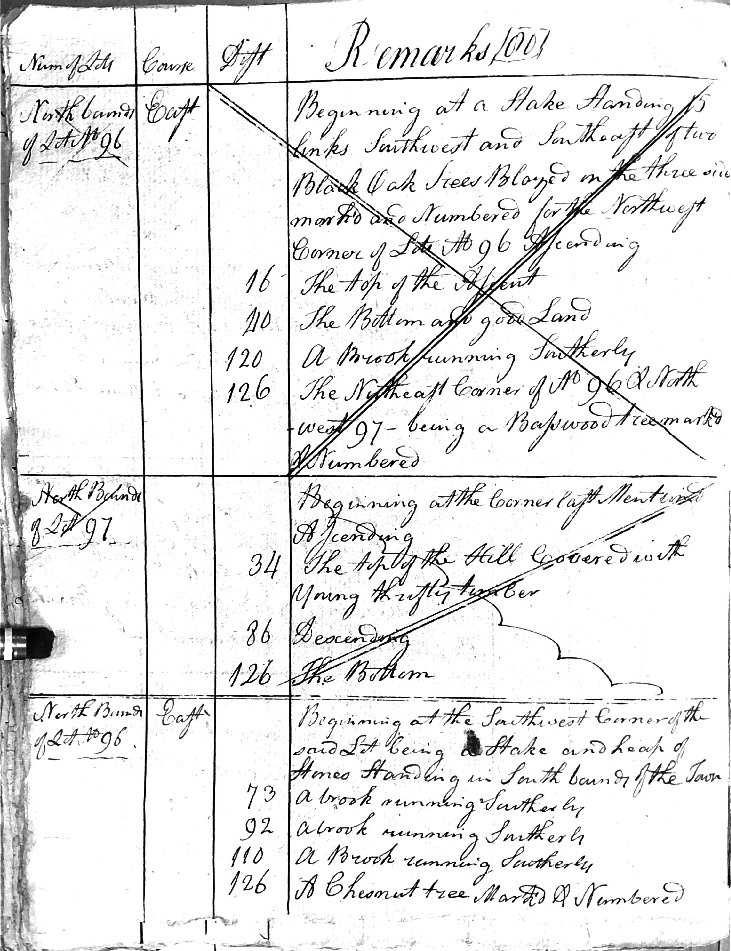 Num of Lots Course Dist Remarks 1801
North bounds East Beginning at a Stake Standing 15
of Lot No 96 links Southwest and Southeast of two
Black Oak Trees Blazed on the three side
markd and Numbered for the Northwest
Corner of Lots No 96 Ascending
16 The top of the Ascent
40 The Bottom and good Land
120 A Brook running Southerly
126 The Northeast Corner of No 96 & North
west 97 - being a Basswood tree markd
& Numbered
North Bounds Beginning at the Corner last Mentiond
of Lot 97 Ascending
34 The top of the Hill Covered with
Young thrifty timber
86 Descending
126 The Bottom
North Bounds East Beginning at the Southwest Corner of the
of Lot No 96. said Lot being a Stake and heap of
Stones Standing in South bounds of the Town
73 a brook running Southerly
92 a brook running Southerly
110 A Brook running Southerly
126 A Chesnut tree Markd & Numbered